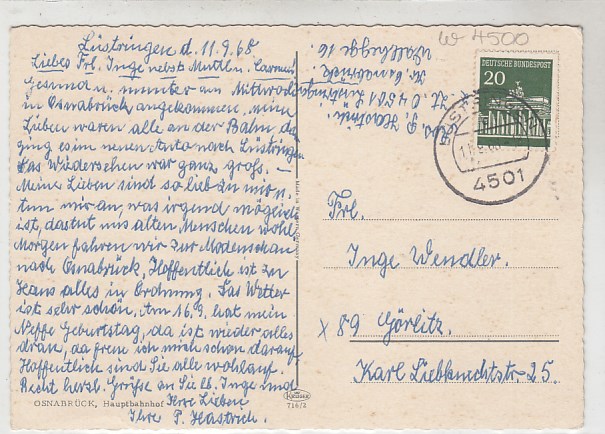 Lüstringen d. 11.9.68
Liebes Frl. Inge nebst Muttln.
Gesund u. munter am Mittwoch
in Osnabrück angekommen, meine
Lieben waren alle an der Bahn, da
ging es im neuen Auto nach Lüstringen
das Wiedersehen war ganz groß. —
Meine Lieben sind so lieb zu mir u.
tun mir an, was irgend möglich
ist, das tut uns alten Menschen wohl
Morgen fahren wir zur Modenschau
nach Osnabrück, Hoffentlich ist zu
Haus alles in Ordnung. Das Wetter
ist sehr schön. Am 16.9. hat mein
Neffe Geburtstag, da ist wieder alles
dran, da freue ich mich schon darauf
Hoffentlich sind Sie alle wohlauf.
Recht herzl. Grüße an Sie lb. Inge und
Ihre Lieben
Ihre P. Hastrich.
OSNABRÜCK, Hauptbahnhof
KRÜGER
716/2
Abs. P. Hastrich
4501 Lüstringen
Kr. Osnabrück
16.
W 4500
DEUTSCHE BUNDESPOST
20
4501
Frl.
Inge Wendler.
x 89 Görlitz.
Karl Liebknechtstr. 25.